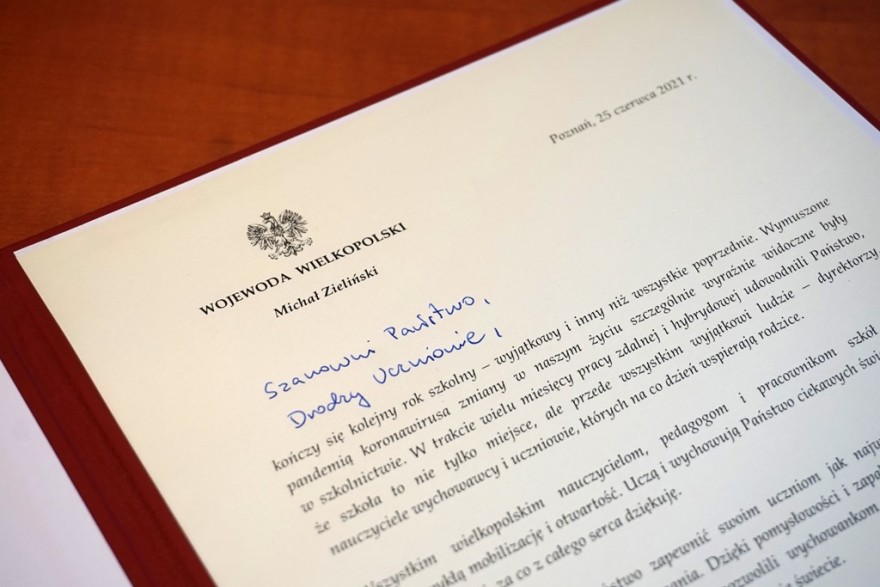 Poznań, 25 czerwca 2021 r.
WOJEWODA WIELKOPOLSKI
Michał Zieliński
Szanowni Państwo,
Drodzy Uczniowie,
kończy się kolejny rok szkolny – wyjątkowy i inny niż wszystkie poprzednie. Wymuszone
pandemią koronawirusa zmiany w naszym życiu szczególnie wyraźnie widoczne były
w szkolnictwie. W trakcie wielu miesięcy pracy zdalnej i hybrydowej udowodnili Państwo,
że szkoła to nie tylko miejsce, ale przede wszystkim wyjątkowi ludzie – dyrektorzy,
nauczyciele wychowawcy i uczniowie, których na co dzień wspierają rodzice.
Wszystkim wielkopolskim nauczycielom, pedagogom i pracownikom szkół
mobilizację i otwartość. Uczą i wychowują Państwo ciekawych
za co z całego serca dziękuję.
zapewnić swoim uczniom jak
Dzięki pomysłowości i
wychowankom